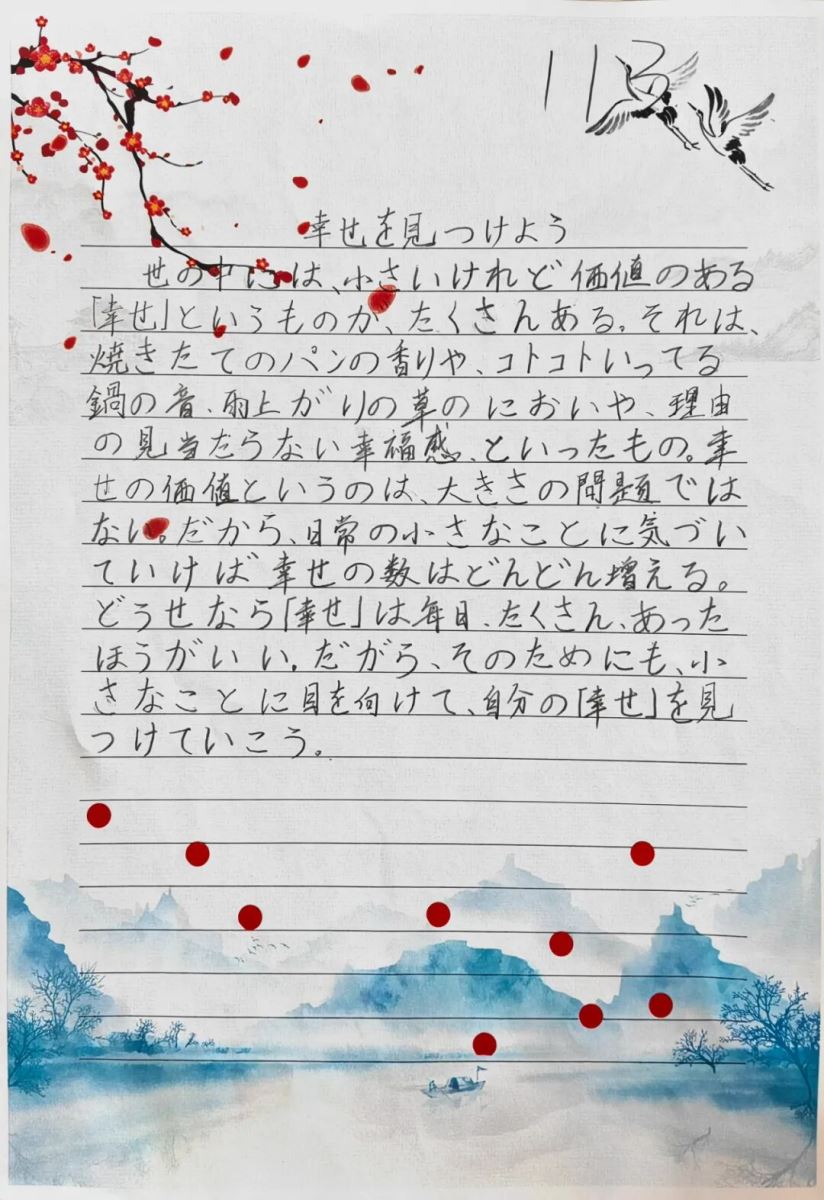 113
幸せを見つけよう
世の中には、小さいけれど価値のある
「幸せ」というものが、たくさんある。それは、
焼きたてのパンの香りや、コトコトいってる
鍋の音、雨上がりの草のにおいや、理由
の見当たらない幸福感、といったもの。幸
せの価値というのは、大きさの問題では
ない。だから、日常の小さなことに気づい
ていけば幸せの数はどんどん増える。
どうせなら「幸せ」は毎日、たくさん、あった
ほうがいい。だがら、そのためにも、小
さなことに目を向けて、自分の「幸せ」を見
つけていこう。